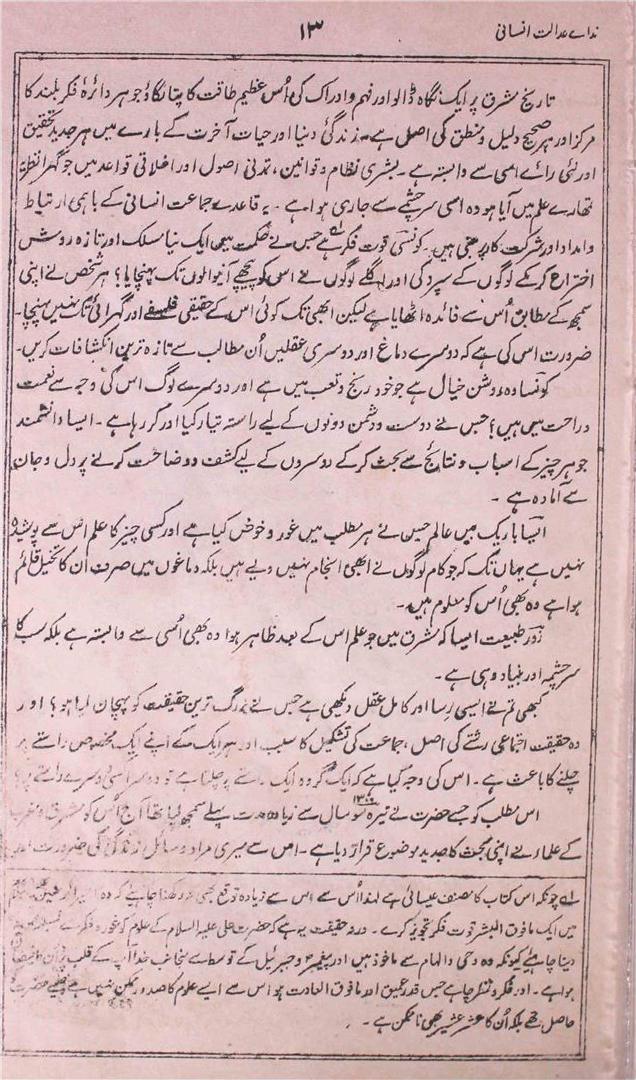 ندائے عدالت انسانی
۱۳
تاریخ مشرق پر ایک نگاہ ڈالو اور فہم و ادراک کی اُس عظیم طاقت کا پتا لگاؤ جو ہر دائرۂ فکر بلند کا
مرکز اور ہر صحیح دلیل و منطق کی اصل ہے۔ زندگیٔ دنیا اور حیات آخرت کے بارے میں ہر جدید تحقیق
اور نئی رائے اسی سے وابستہ ہے۔ بشری نظام و قوانین، تمدنی اصول اور اخلاقی قواعد میں جو گہرا نظریہ
تمھارے علم میں آیا ہو وہ اسی سرچشمے سے جاری ہوا ہے۔ یہ قاعدے جماعت انسانی کے باہمی ارتباط
و امداد اور شرکت کار پر مبنی ہیں۔ کونسی قوت فکر ہے جس نے حکمت میں ایک نیا مسلک اور تازہ روش
اختراع کر کے لوگوں کے سپرد کی اور اگلے لوگوں نے اس کو پیچھے آنیوالوں تک پہنچایا؟ ہر شخص نے اپنی
سمجھ کے مطابق اُس سے فائدہ اٹھایا ہے لیکن ابھی تک کوئی اس کے حقیقی فلسفے اور گہرائی تک نہیں پہنچا۔
ضرورت اس کی ہے کہ دوسرے دماغ اور دوسری عقلیں اُن مطالب سے تازہ ترین انکشافات کریں۔
کونسا وہ روشن خیال ہے جو خود رنج و تعب میں ہے اور دوسرے لوگ اس کی وجہ سے نعمت
و راحت میں ہیں؟ جس نے دوست و دشمن دونوں کے لیے راستہ تیار کیا اور کر رہا ہے۔ ایسا دانشمند
جو ہر چیز کے اسباب و نتائج سے بحث کر کے دوسروں کے لیے کشف و وضاحت کرنے پر دل و جان
سے آمادہ ہے۔
ایسا باریک بیں عالم جس نے ہر مطلب میں غور و خوض کیا ہے اور کسی چیز کا علم اس سے پوشیدہ
نہیں ہے یہاں تک کہ جو کام لوگوں نے ابھی انجام نہیں دیے ہیں بلکہ دماغوں میں صرف اُن کا تخیل قائم
ہوا ہے وہ بھی اُس کو معلوم ہیں۔
زور طبیعت ایسا کہ مشرق میں جو علم اس کے بعد ظاہر ہوا وہ بھی اُسی سے وابستہ ہے بلکہ سب کا
سرچشمہ اور بنیاد وہی ہے۔
کبھی تم نے ایسی رسا اور کامل عقل دیکھی ہے جس نے بزرگ ترین حقیقت کو پہچان لیا ہو؟ اور
وہ حقیقت اجتماعی رشتے کی اصل، جماعت کی تشکیل کا سبب اور ہر ایک کے اپنے ایک مخصوص راستے پر
چلنے کا باعث ہے۔ اس کی وجہ کیا ہے کہ ایک گروہ ایک راستے پر چلتا ہے تو دوسرا کسی دوسرے راستے پر؟
اس مطلب کو جسے حضرت نے تیرہ سو ۱۳۰۰ سال سے زیادہ مدت پہلے سمجھ لیا تھا آج اُس کو مشرق و مغرب
کے علماء نے اپنی بحث کا جدید موضوع قرار دیا ہے۔ اس سے میری مراد وسائل زندگی کی ضرورت اور
لے چونکہ اس کتاب کا مصنف عیسائی ہے لہٰذا اُس سے اس سے زیادہ توقع بھی نہ رکھنا چاہئے کہ وہ
میں ایک مافوق البشر قوت فکر تجویز کرے۔ ورنہ حقیقت یہ ہے کہ حضرت علی علیہ السلام کے علوم کو غور و فکر سے
دینا چاہئے کیونکہ وہ وحی و الہام سے ماخوذ ہیں اور پیغمبر و جبرئیل کے توسط سے منجانب خدا آپ کے قلب پر اُن کا
ہوا ہے۔ اور فکر و نظر چاہے جس قدر عمیق اور مافوق العادت ہو اس سے ایسے علوم کا صدور ممکن نہیں ہے جیسے حضرت
حاصل تھے بلکہ اُن کا عشر عشیر بھی ناممکن ہے۔